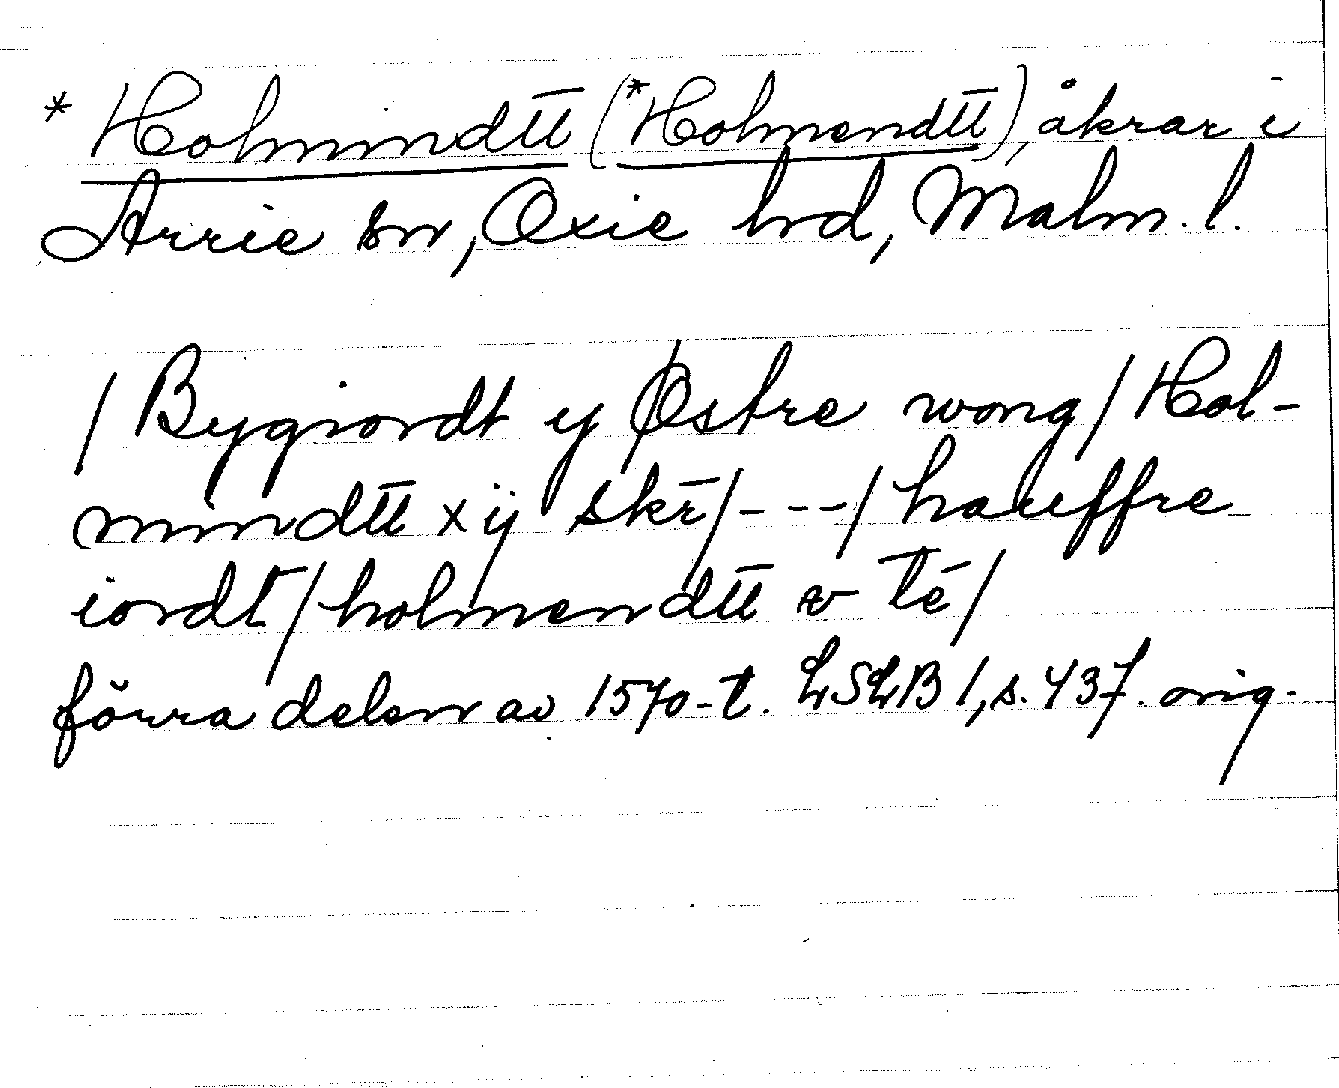 * Holmindt̅t̅ (*Holmendt̅t̅), åkrar i
Arrie sn, Oxie hrd, Malm. l.
/ Bygiordt y Østre wong / Hol-
mindt̅t̅ x ij skr̅ / - - - / hauffre
iordt̅ / holmendt̅t̅ v te̅ /
förra delen av 1570-t. LSLB 1, s. 437. orig.